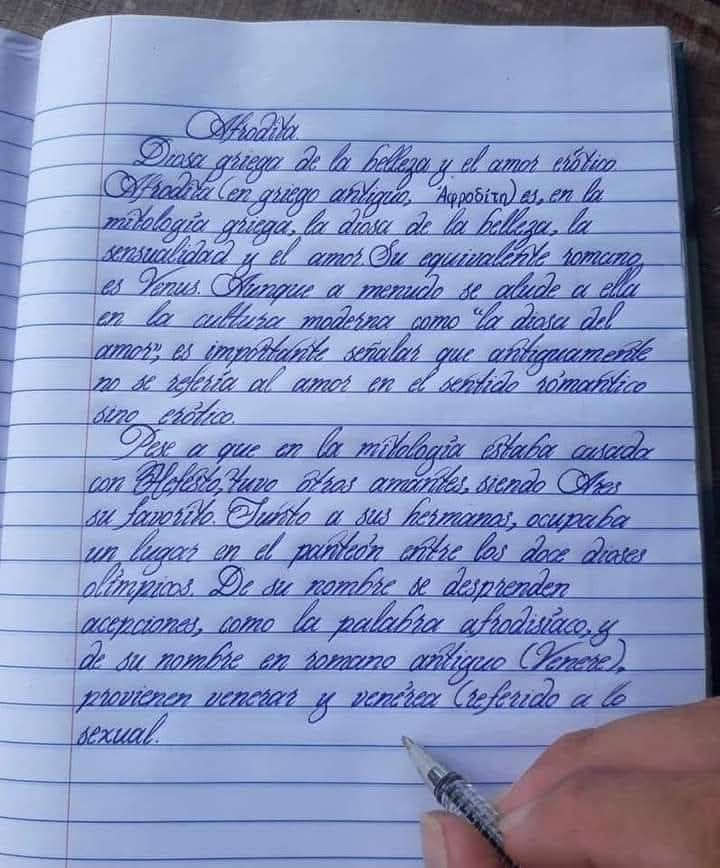 Afrodita
Diosa griega de la belleza y el amor erótico.
Afrodita (en griego antiguo, Ἀφροδίτη) es, en la
mitología griega, la diosa de la belleza, la
sensualidad y el amor. Su equivalente romano
es Venus. Aunque a menudo se alude a ella
en la cultura moderna como "la diosa del
amor", es importante señalar que antiguamente
no se refería al amor en el sentido romántico
sino erótico.
Pese a que en la mitología estaba casada
con Hefesto, tuvo otros amantes, siendo Ares
su favorito. Junto a sus hermanos, ocupaba
un lugar en el panteón entre los doce dioses
olímpicos. De su nombre se desprenden
acepciones, como la palabra afrodisíaco, y
de su nombre en romano antiguo (Venere),
provienen venerar y venérea (referido a lo
sexual.